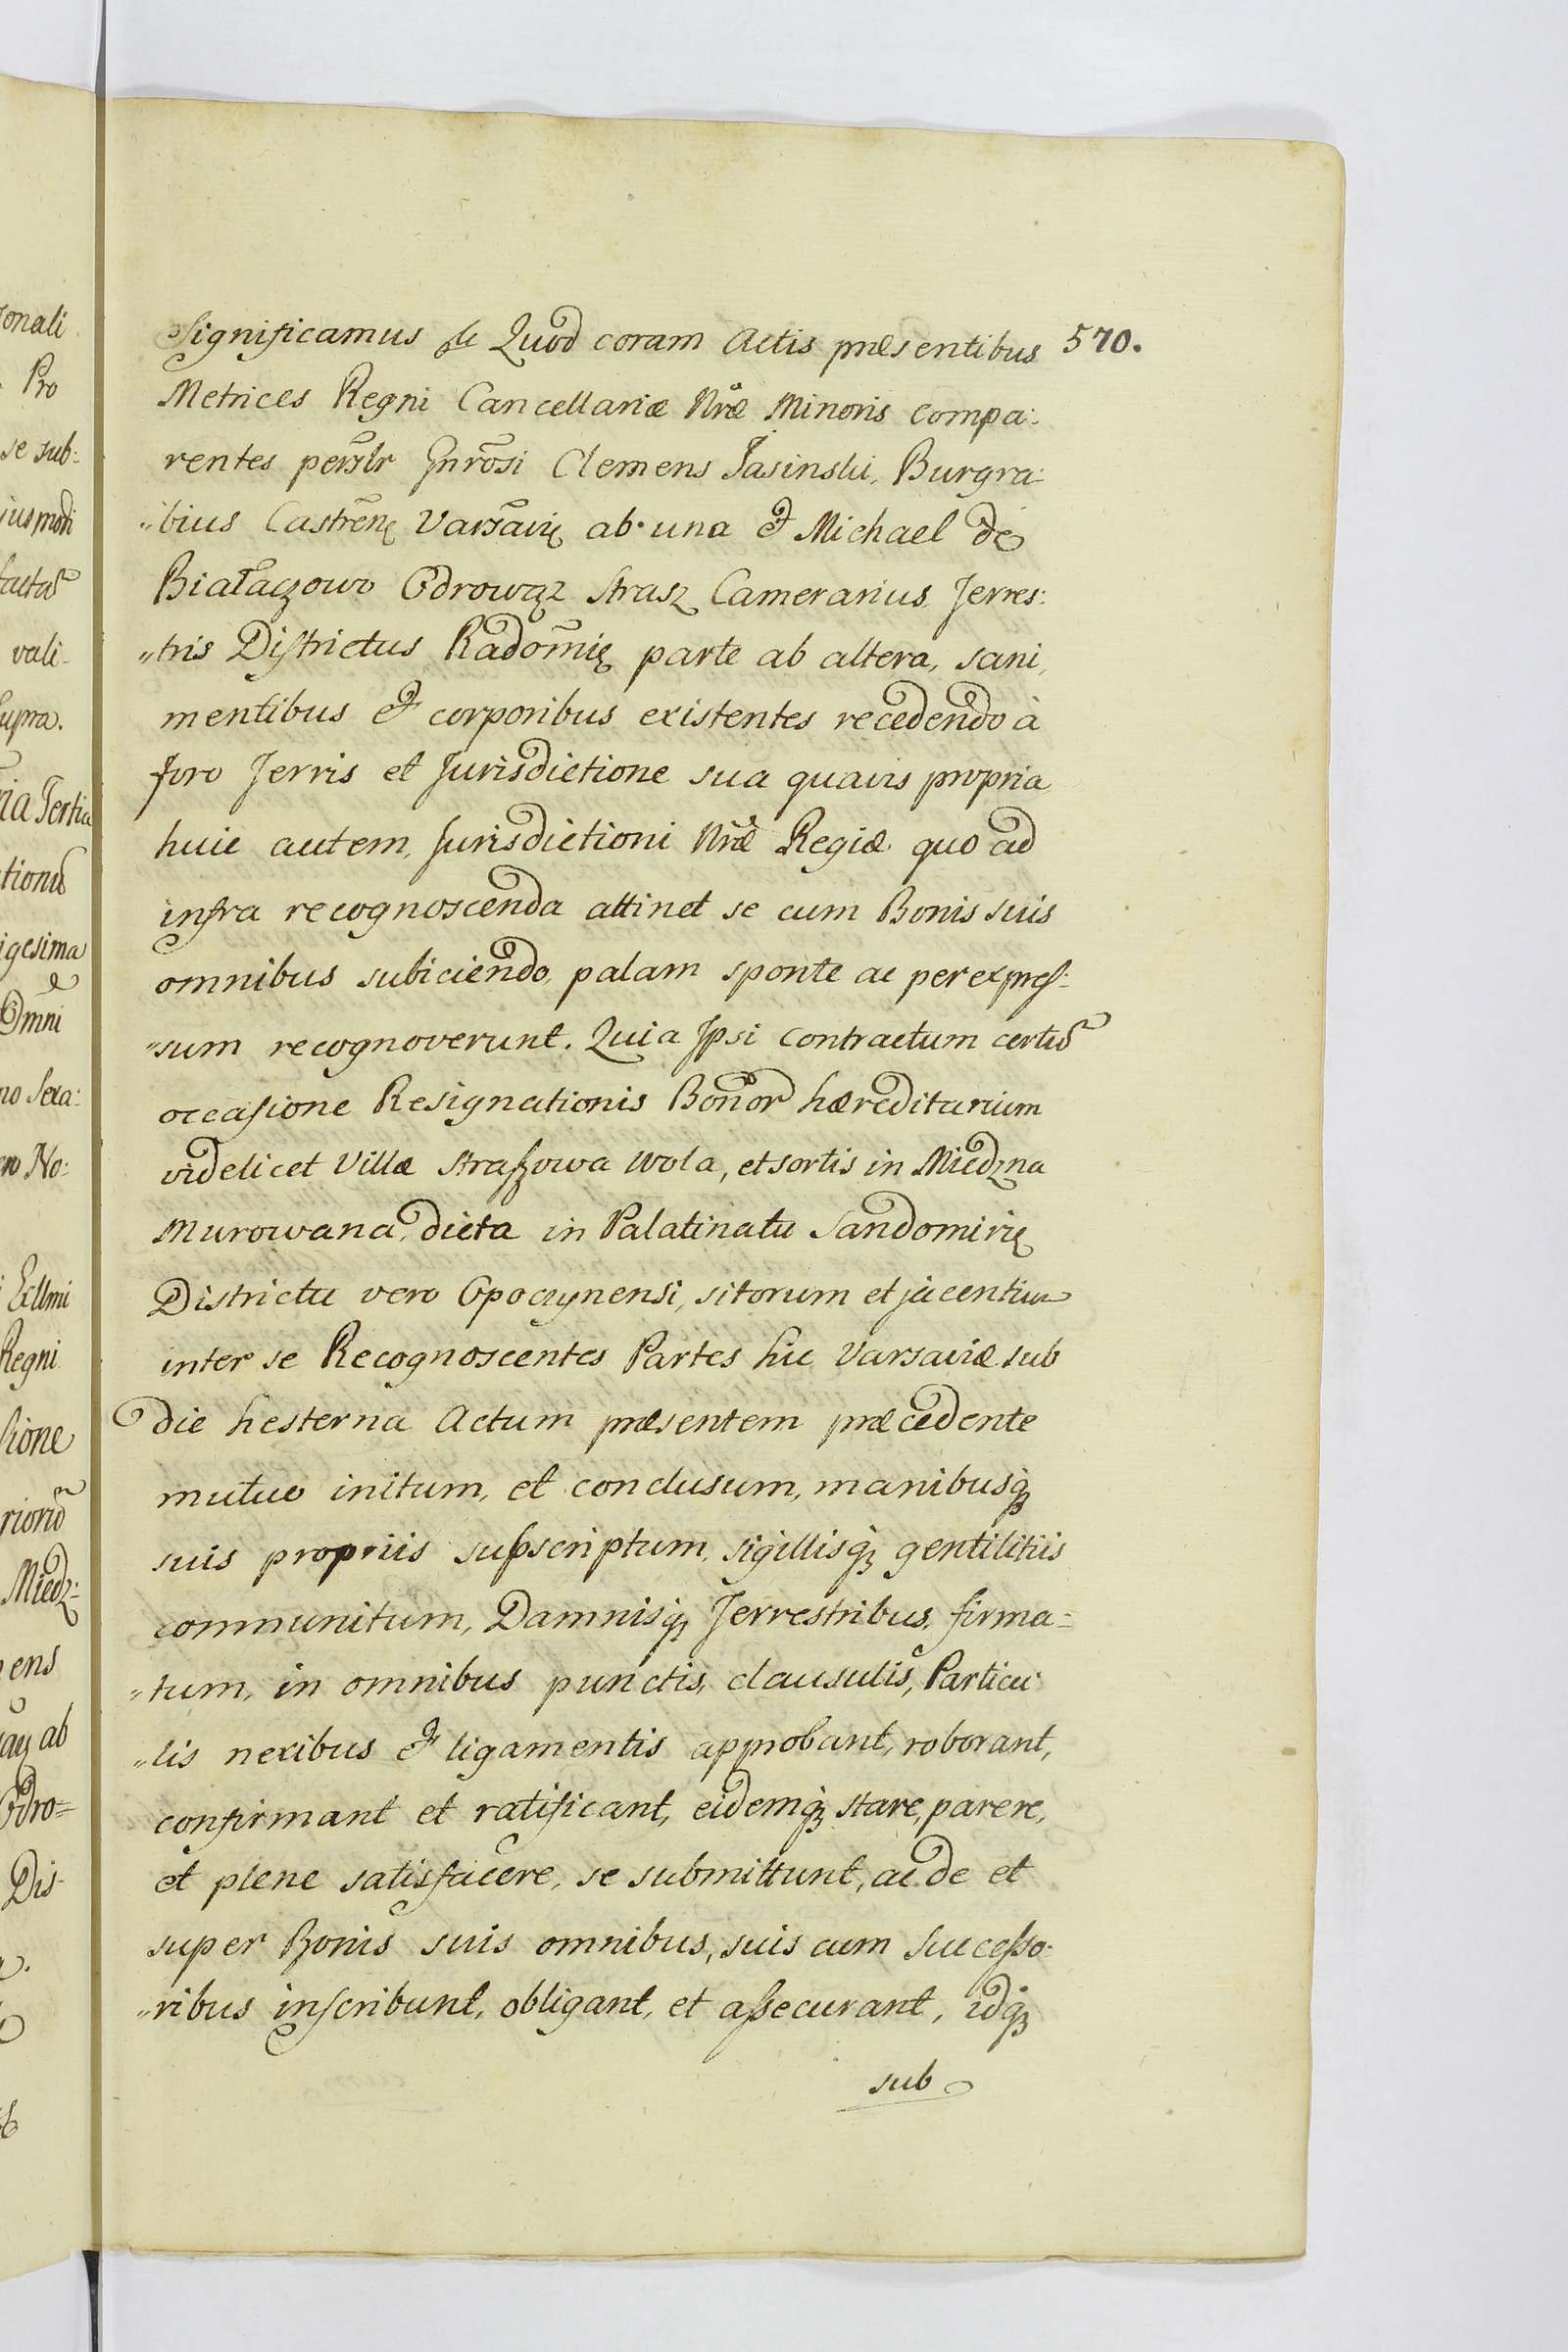 Significamus &c Quod coram Actis præsentibus 570.
Metrices Regni Cancellariæ Nræ Minoris compa:
rentes persłr Gnrosi Clemens Jasinski, Burgra:
"bius Castren̄ę Varsavię ab una et Michael de
Białaczowo Odrowąz Strasz Camerarius Terres:
"tris Districtus Radom̄ię parte ab altera, sani
mentibus et corporibus existentes recedendo à
foro Terris et Jurisdictione sua quavis propria
huic autem Jurisdictioni Nræ Regiæ quo ad
infra recognoscenda attinet se cum Bonis suis
omnibus subiciendo palam sponte ac per expres:
"sum recognoverunt. Quia Ipsi contractum certu̅
occasione Resignationis Bonor hæreditarium
videlicet Villæ Straszowa Wola, et sortis in Miedzna
Murowana dicta in Palatinatu Sandomirię
Districtu vero Opocznensi, sitorum et jacentium
inter se Recognoscentes Partes hic Varsaviæ sub
die hesterna Actum præsentem præcedente
mutuo initum, et conclusum, manibusq́ꝫ
suis propriis subscriptum, sigillisq́ꝫ gentilitiis
communitum, Damnisq́ꝫ Terrestribus firma=
"tum, in omnibus punctis, clausulis, Particu:
"lis nexibus et ligamentis approbant, roborant,
confirmant et ratificant, eidemq́ꝫ stare, parere,
et plene satisfacere, se submittunt, ac de et
super Bonis suis omnibus, suis cum Successo:
"ribus inscribunt, obligant, et assecurant, idq́ꝫ
sub